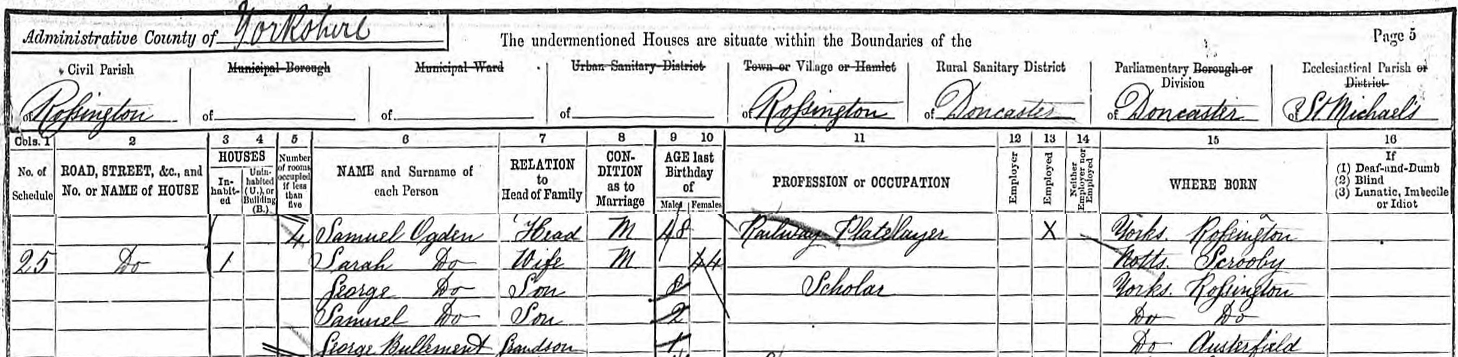 Administrative County of Yorkshire
The undermentioned Houses are situate within the Boundaries of the
Page 5
Civil Parish
Municipal Borough
Municipal Ward
Urban Sanitary District
Town or Village or Hamlet
Rural Sanitary District
Parliamentary Borough or Division
Ecclesiastical Parish or District
of Roſsington
of
of
of
of Roſsington
of Doncaster
of Doncaster
of St Michael's
Cols. 1 2 3 4 5 6 7 8 9 10 11 12 13 14 15 16
No. of Schedule
ROAD, STREET, &c., and No. or NAME of HOUSE
HOUSES
Inhabited
Uninhabited (U.), or Building (B.)
Number of rooms occupied if less than five
NAME and Surname of each Person
RELATION to Head of Family
CONDITION as to Marriage
AGE last Birthday of
Males
Females
PROFESSION or OCCUPATION
Employer
Employed
Neither Employer nor Employed
WHERE BORN
If
(1) Deaf-and-Dumb
(2) Blind
(3) Lunatic, Imbecile or Idiot
4 Samuel Ogden Head M 48 Railway Platelayer X Yorks Roſsington
25 Do 1 Sarah Do Wife M 44 Notts. Scrooby
George Do Son 8 Scholar Yorks. Roſsington
Samuel Do Son 2 Do Do
George Bullement Grandson 1 Do Austerfield